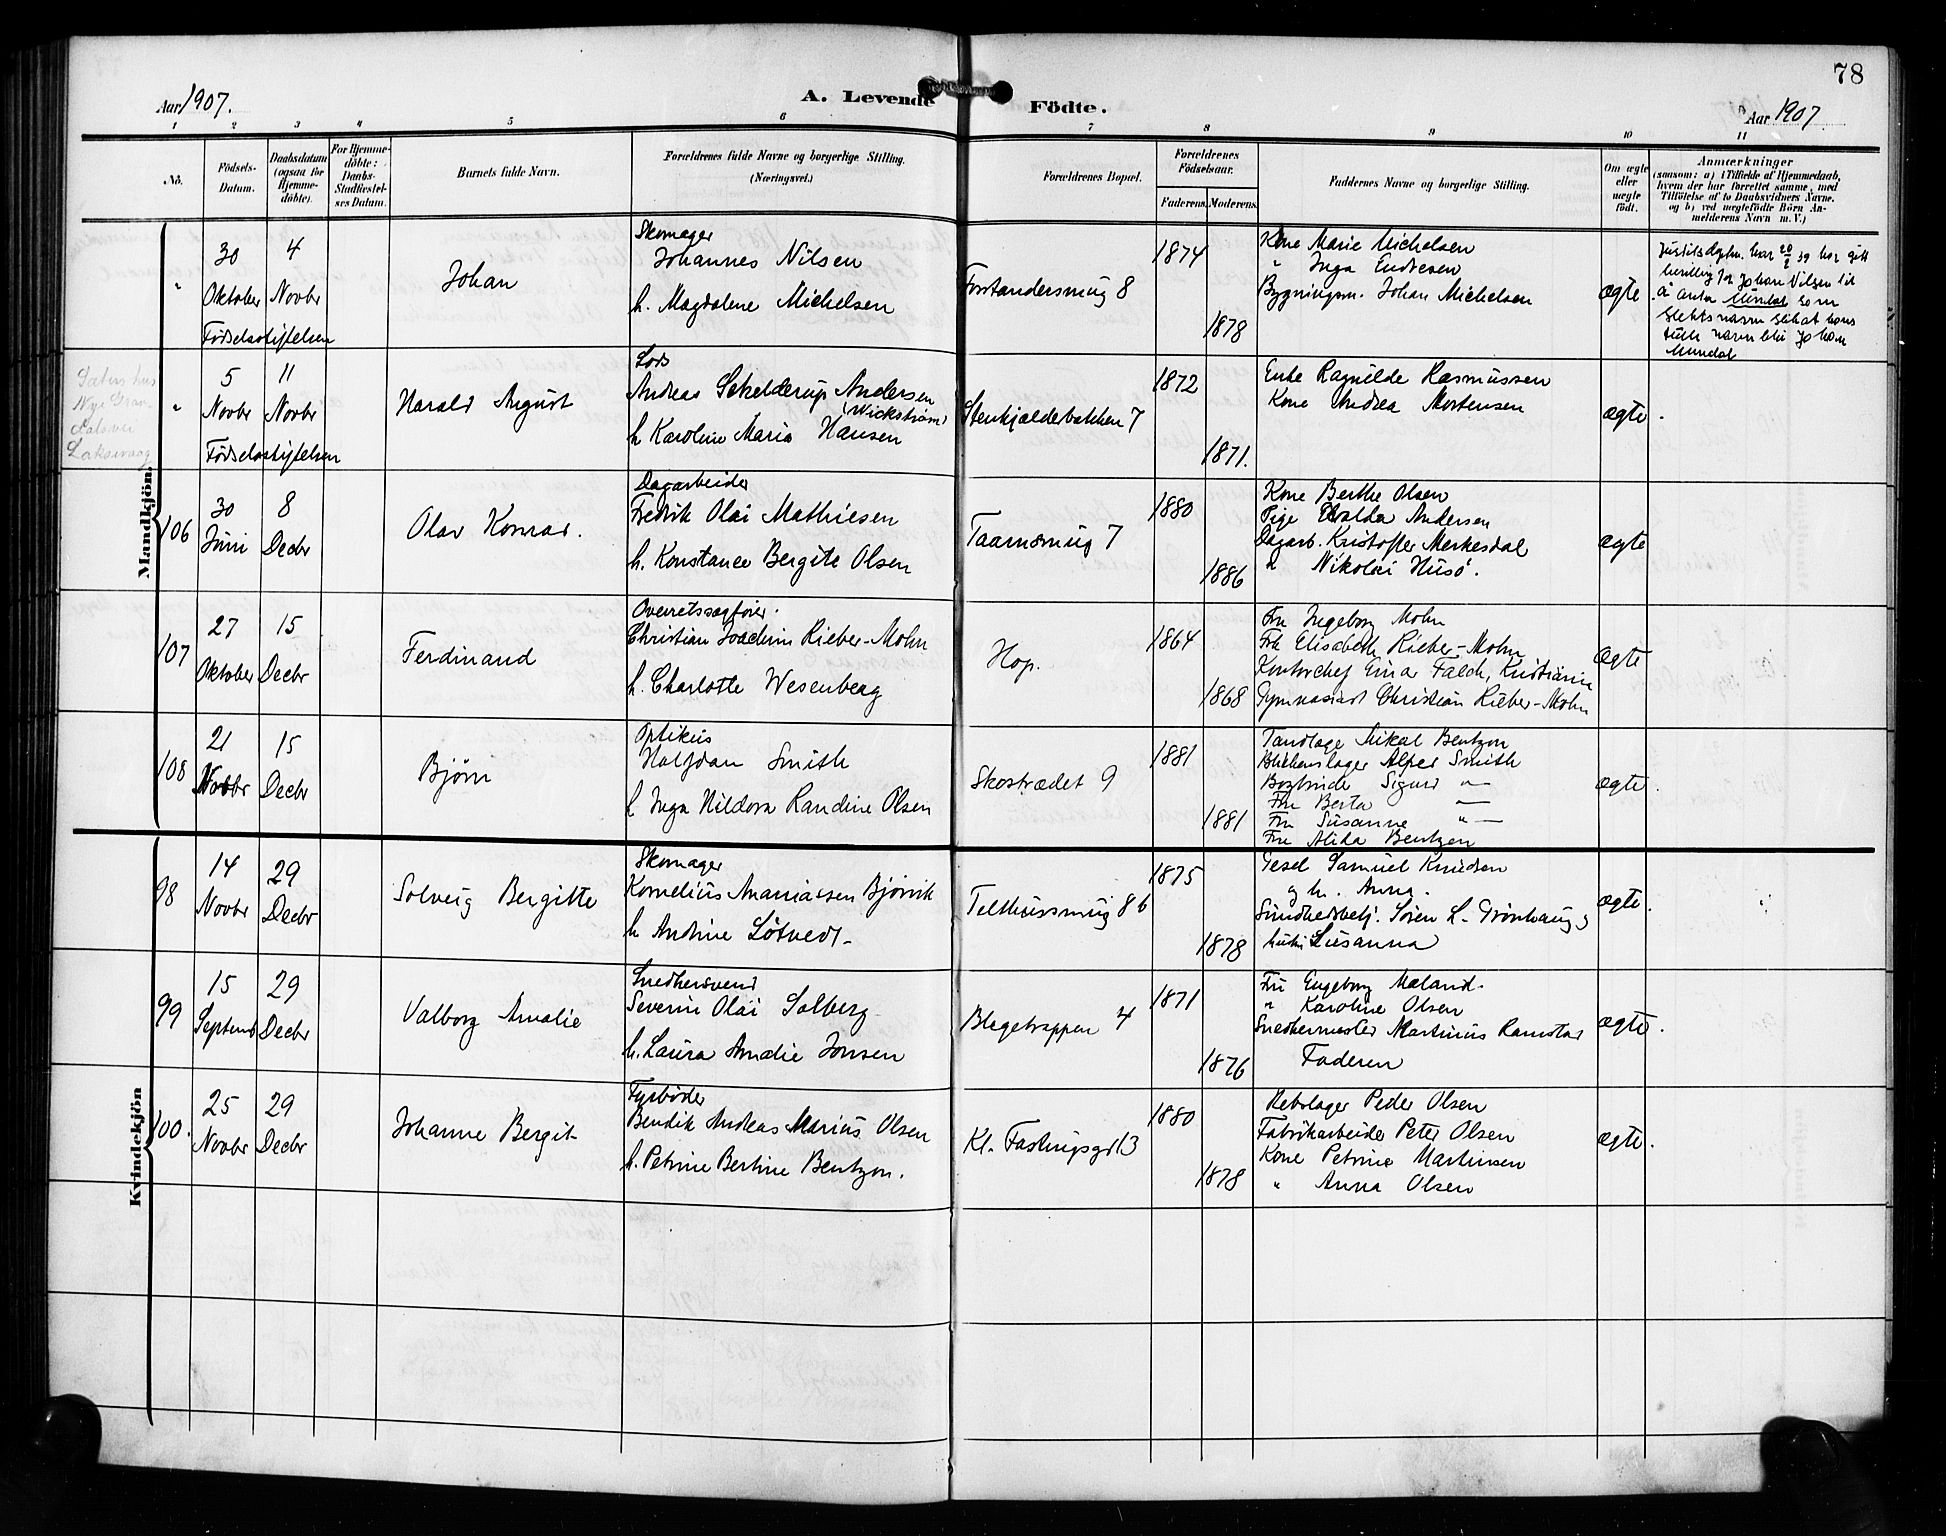 78
Aar 1907.
A. Levende Födte.
Aar 1907.
1 2 3 4 5 6 7 8 9 10 11
No.
Födsels-
Datum.
Daabsdatum
(ogsaa for
Hjemme-
döbte).
For Hjemme-
döbte:
Daabs-
Stadfæstel-
ses Datum.
Barnets fulde Navn.
Forældrenes fulde Navne og borgerlige Stilling.
(Næringsvei.)
Forældrenes Bopæl.
Forældrenes
Födselsaar.
Faderens. Moderens.
Faddernes Navne og borgerlige Stilling.
Om ægte
eller
uægte
født.
Anmærkninger
(saasom: a) i Tilfælde af Hjemmedaab,
hvem der har forrettet samme, med
Tilföielse af to Daabsvidners Navne.
og b) ved uægtefödte Börn An-
melderens Navn m. V.)
Mandkjön.
"
30
Oktober
4
Novbr
Fødselsstiftelsen
Johan
Skomager
Johannes Nilsen
h. Magdalene Michelsen
Forstandersmug 8
1874
1878
Kone Marie Michelsen
" Inga Endresen
Bygningsm. Johan Michelsen
ægte
Justitsdeptm. har 20/2 39 har gitt
bevilling for Johan Nilsen til
å anta Mundal som
slektsnavn slik at hans
fulle navn blir Johan
Mundal
Laksevaag
"
5
Novbr
11
Novbr
Fødselsstiftelsen
Harald August
Lods
Andreas Schelderup Andersen
(Wickstrøm)
h Karoline Maria Hansen
Stenkjælderbakken 7
1872
1871.
Enke Ragnilde Rasmussen
Kone Andrea Mortensen
ægte.
106
30
Juni
8
Decbr
Olav Konrad.
Dagarbeider
Fredrik Olai Mathiesen
h. Konstance Bergite Olsen
Taarnsmug 7
1880
1886
Kone Berthe Olsen
Pige Evalda Andersen
Dagarb. Kristoffer Merkesdal
" Nikolai Husø.
ægte
107
27
Oktober
15
Decbr
Ferdinand
Overretssagfører.
Christian Joachim Rieber-Mohn
h. Charlotte Wesenberg
Hop.
1864
1868
Fru Ingeborg Mohn
Frk Elisabeth Rieber-Mohn
Kontorchef Einar Falch, Kristiania
Gymnasiast Christian Rieber-Mohn
Ægte
108
21
Novbr
15
Decbr
Bjørn
Optikus
Halfdan Smith
h Inga Hildora Randine Olsen
Skostrædet 9
1881
1881
Tandlæge Mikal Bentzon
Blikkenslager Alfred Smith
Bogbinder Sigurd "
Fru Berta "
Fru Susanne "
Fru Alida Bentzen
ægte.
Kvindekjön
98
14
Novbr
29
Decbr
Solveig Bergitte
Skomager
Kornelius Ananiassen Bjørvik
h Andrine Løtvedt
Telthussmug 8 b
1875
1878
Gesel Samuel Knudsen
og h. Anna.
Sundhedsbetj. Søren L. Grønhaug og
hustru Susanna
ægte.
99
15
Septemb
29
Decbr
Valborg Amalie
Snedkersvend
Severin Olai Solberg
h. Laura Amalie Jonsen
Blegetrappen 4
1871
1876
Fru Engeborg Mæland.
" Karoline Olsen
Snedkermester Martinus Ramstad
Faderen
ægte.
100.
25
Novbr
29
Decbr
Johanne Bergit
Fyrbøder
Bendik Andreas Marius Olsen
h. Petrine Bertine Bentzon.
Kl. Fastingsgd 13
1880
1878
Rebslager Peder Olsen
Fabrikarbeider Peter Olsen
Kone Petrine Martinsen
" Anna Olsen
ægte.